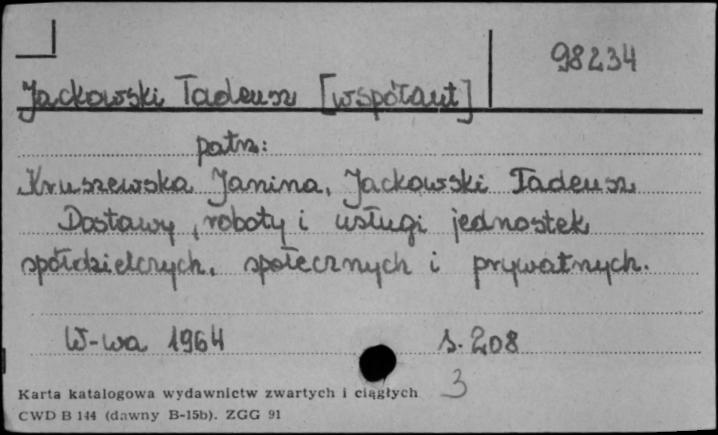 98234
Jackowski Tadeusz [współaut]
patrz:
Kruszewska Janina, Jackowski Tadeusz
Dostawy, roboty i usługi jednostek
spółdzielczych, społecznych i prywatnych.
W-wa 1964 s. 208
3
Karta katalogowa wydawnictw zwartych i ciągłych
CWD B 144 (dawny B-15b). ZGG 91